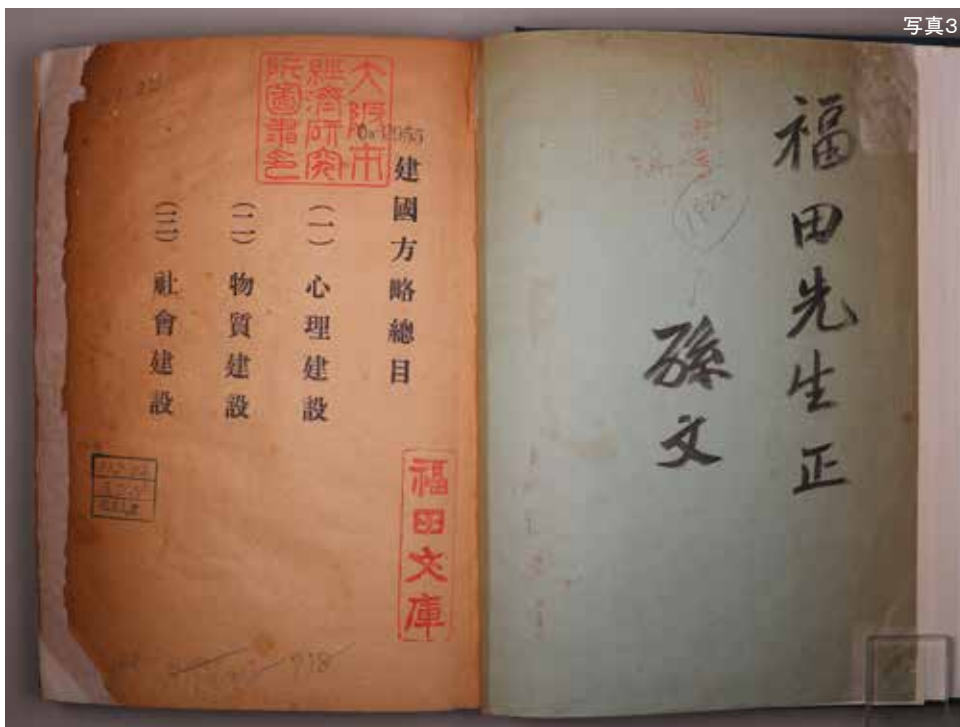 写真3
福田先生正
孫文
大阪市
經濟研究
所圖書印
建國方略總目
(一) 心理建設
(二) 物質建設
(三) 社會建設
福田文庫